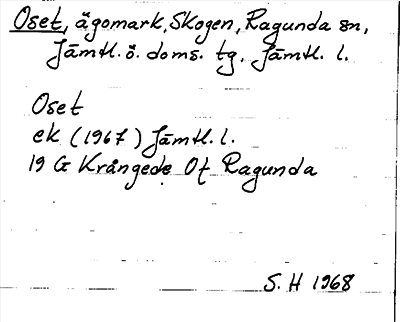 Oset, ägomark, Skogen, Ragunda sn,
Jämtl. ö. doms. tg, Jämtl. l.
Oset
ek (1967) Jämtl. l.
19 G Krångede Of Ragunda
S. H 1968